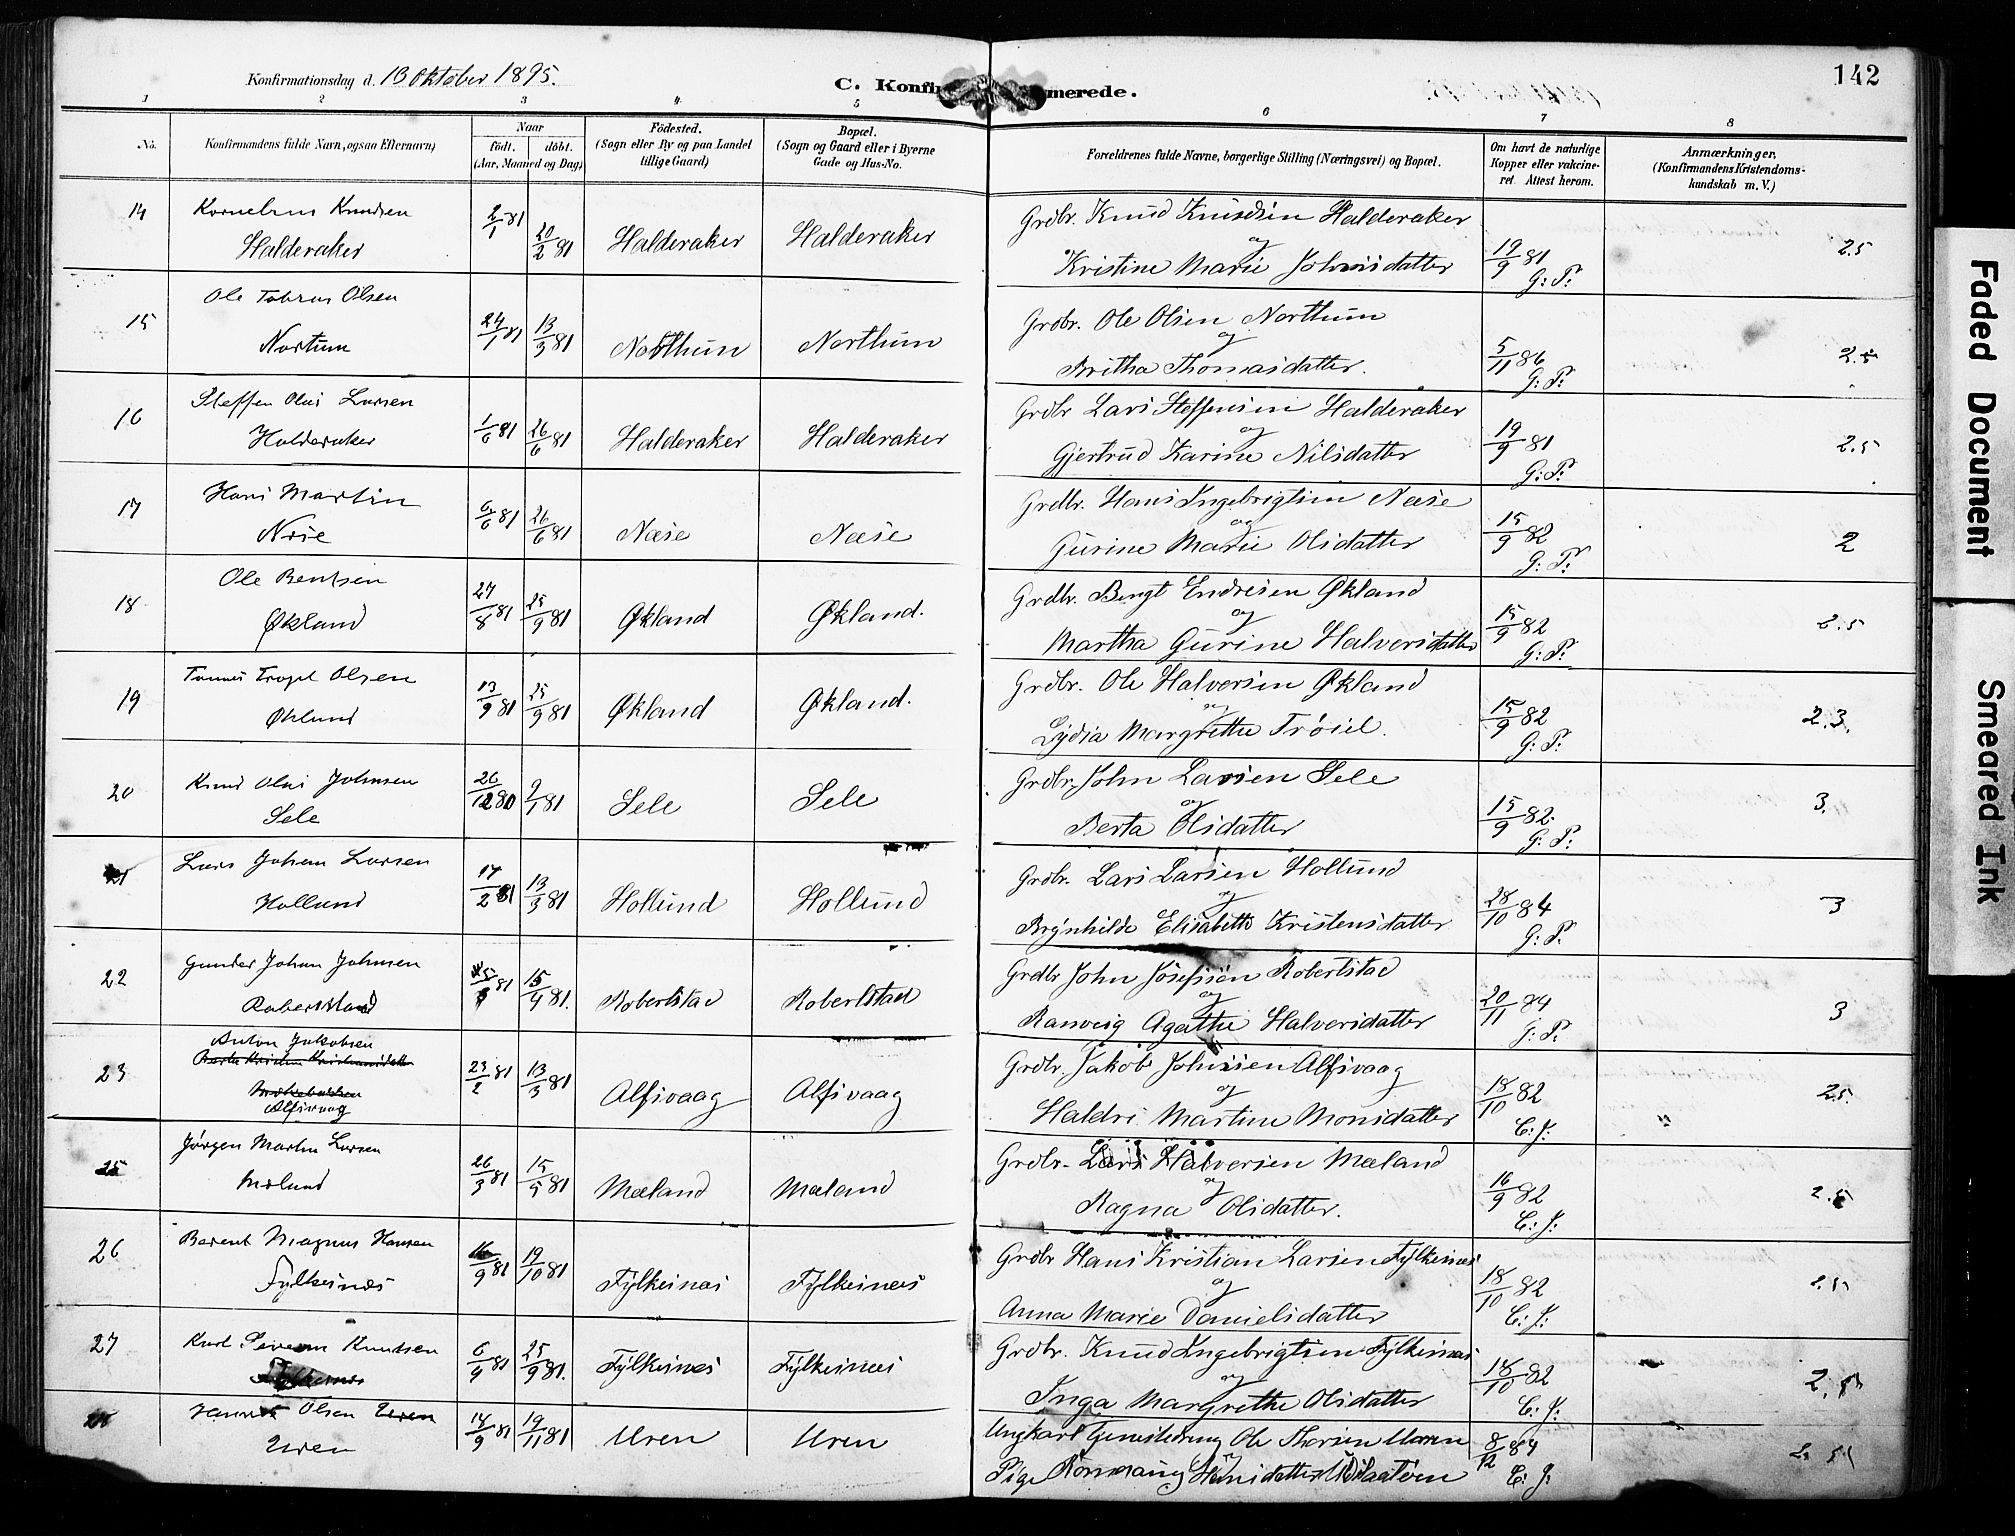 Konfirmationsdag d. 13 Oktober 1895.
C. Konfir merede.
142
1 2 3 4 5 6 7 8
No.
Konfirmandens fulde Navn, ogsaa Efternavn)
Naar
födt. döbt.
(Aar, Maaned og Dag)
Födested.
(Sogn eller By og paa Landet
tillige Gaard)
Bopæl.
(Sogn og Gaard eller i Byerne
Gade og Hus-No.
Forældrenes fulde Navne, borgerlige Stilling (Næringsvei) og Bopæl.
Om havt de naturlige
Kopper eller vakcine-
ret. Attest herom.
Anmærkninger,
(Konfirmandens Kristendoms-
kundskab m. V.)
14 Kornelius Knudsen
Halderaker
2/1 81 20/2 81 Halderaker Halderaker
Grdbr. Knud Knudsen Halderaker
og
Kristine Marie Johnisdatter
19/9 81
G: P:
2.5
15 Ole Tobias Olsen
Nortum
24/1 81 13/3 81 Northum Northum
Grdbr. Ole Olsen Northum
og
Britha Thomasdatter.
5/11 86
G: P:
2.5
16 Steffen Olai Larsen
Halderaker
1/6 81 26/6 81 Halderaker Halderaker
Grdbr Lars Steffensen Halderaker
og
Gjertrud Karine Nilsdatter
19/9 81
G: P:
2.5
17 Hans Martin
Næse
6/6 81 26/6 81 Næse Næse
Grdbr. Hans Ingebrigtsen Næse
og
Gurine Marie Olsdatter
15/9 82
G: P:
2
18 Ole Bentsen
Økland
27/8 81 25/9 81 Økland Økland.
Grdbr. Bengt Endresen Økland
og
Martha Gurine Halversdatter
15/9 82
G: P:
2.5
19 Olsen
Økland
13/9 81 25/9 81 Økland Økland.
Grdbr. Ole Halversen Økland
og
Lydia Margrethe Trøiel.
15/9 82
G: P:
2.3.
20 Knud Olai Johnsen
Sele
26/12 80 2/1 81 Sele Sele
Grdbr. John Larsen Sele
og
Berta Olsdatter
15/9 82.
G: P:
3.
21 Lars Johan Larsen
Hollund
17/2 81 13/3 81 Hollund Hollund
Grdbr. Lars Larsen Hollund
og
Brynhilde Elisabeth Kristensdatter
28/10 84
G: P:
3
22 Gunder Johan Johnsen
Robertstad
81 15/4 81. Robertstad Robertstad
Grdbr John Josefsen Robertstad
og
Ranveig Agathe Halversdatter
20/11 84
G: P:
3
Anton Jakobsen
23
Alfsvaag
23/2 81 13/3 81 Alfsvaag Alfsvaag
Grdbr. Jakob Johnsen Alfsvaag
og
Haldri Martine Monsdatter
18/10 82
C: J:
2.5.
25 Jørgen Martin Larsen
Mæland
26/3 81 15/5 81 Mæland Mæland
Grdbr. Lars Halversen Mæland
og
Ragna Olsdatter.
16/9 82
C: J:
2.5
26 Berent Magnus Hansen
Fylkesnæs
16/9 81 19/10 81 Fylkesnæs Fylkesnæs
Grdbr Hans Kristian Larsen Fylkesnæs
og
Anna Marie Danielsdatter
18/10 82
C: J:
2.5
27 Karl Severin Knutsen
Fylkesnes
6/9 81 25/9 81. Fylkesnæs Fylkesnæs
Grdbr. Knud Ingebrigtsen Fylkesnæs
og
Inga Margrethe Olsdatter
18/10 82
C: J:
2.5
Olsen Uren
Uren
14/9 81 19/11 81 Uren Uren
Ungkarl Ole Thorsen Uren
og
Pige Hansdatter
8/12 84
C: J:
2.5
Faded Document
Smeared Ink